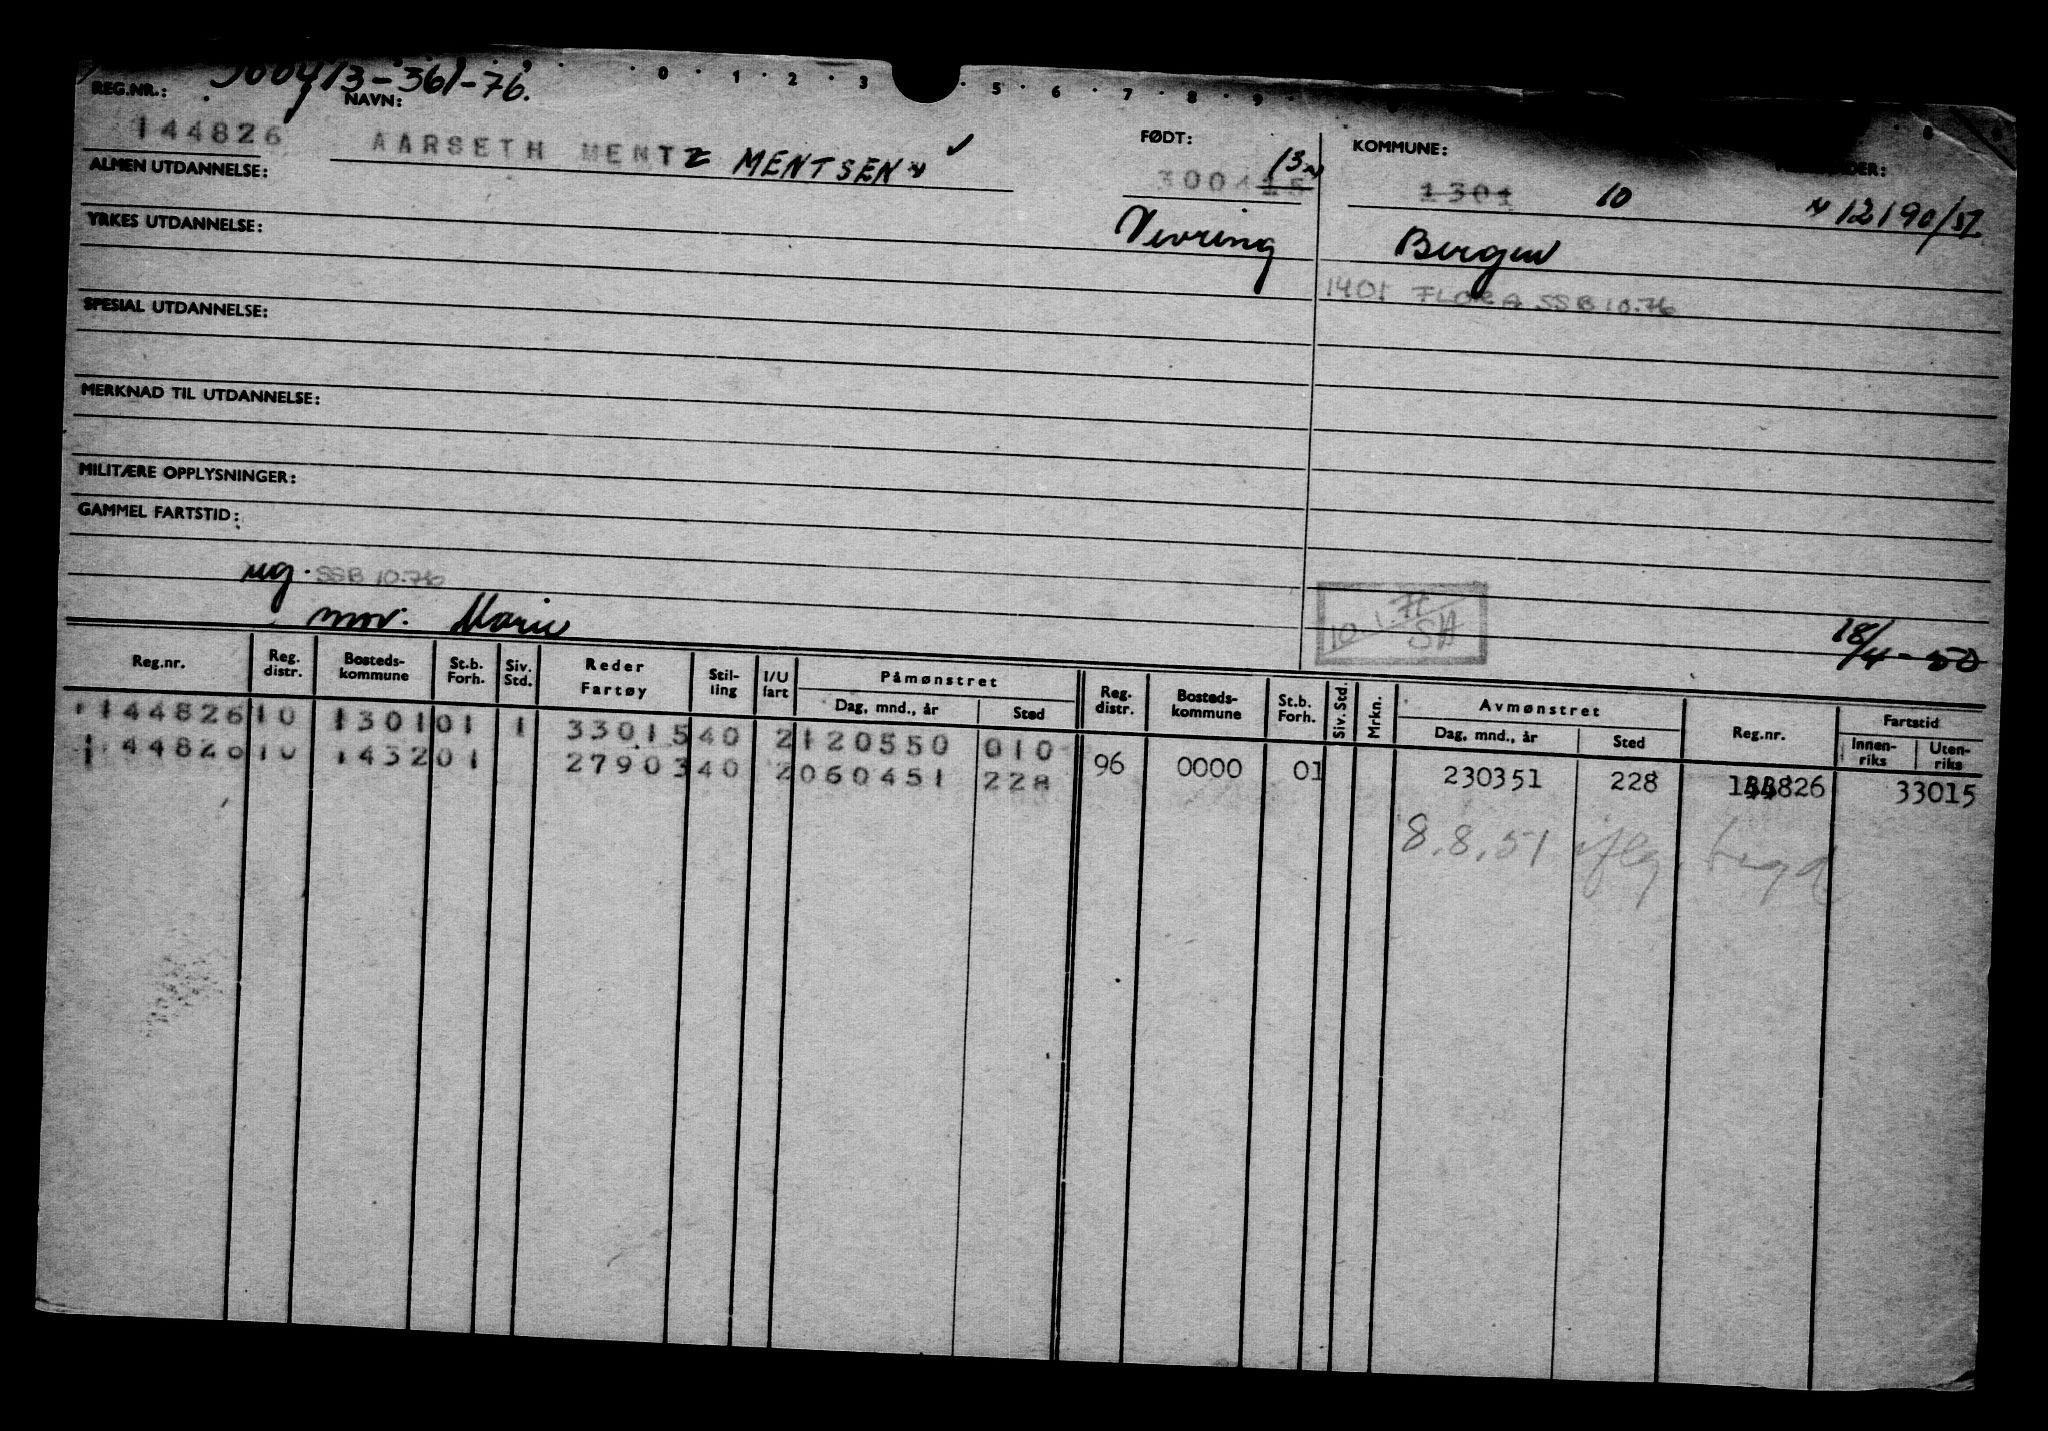 300413-361-76.
0 1 2 3 5 6 7 8 9
REG.NR.: NAVN: FØDT: KOMMUNE:
144826 AARSETH MENTZ MENTSEN ✓ 300415 13 1301 10 12190/51
ALMEN UTDANNELSE:
YRKES UTDANNELSE: Vevring Bergen
1401 FLORA SSB 10.76
SPESIAL UTDANNELSE:
MERKNAD TIL UTDANNELSE:
MILITÆRE OPPLYSNINGER:
GAMMEL FARTSTID:
ug. SSB 10.76
mor: Marie 18/4-50
Reg.nr. Reg. distr. Bosteds-kommune St.b. Forh. Siv. Std. Reder Fartøy Stil-ling I/U fart Påmønstret Dag, mnd., år Sted Reg. distr. Bosteds-kommune St.b. Forh. Siv. Std. Mrkn. Avmønstret Dag, mnd., år Sted Reg.nr. Fartstid Innen-riks Uten-riks
144826 10 1301 01 1 33015 40 2 120550 010 96 0000 01 230351 228 144826 33015
144826 10 1432 01 27903 40 2 060451 228 8.8.51 iflg.